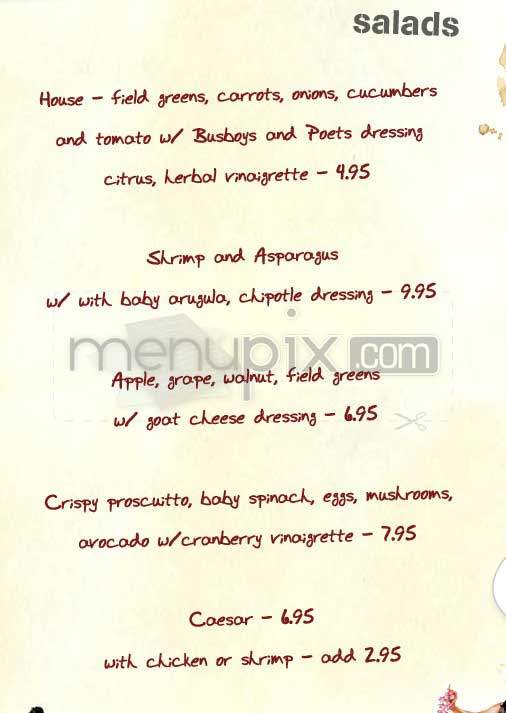 salads
House - field greens, carrots, onions, cucumbers
and tomato w/ Busboys and Poets dressing
citrus, herbal vinaigrette - 4.95
Shrimp and Asparagus
w/ with baby arugula, chipotle dressing - 9.95
menupix.com
Apple, grape, walnut, field greens
w/ goat cheese dressing - 6.95
Crispy proscuitto, baby spinach, eggs, mushrooms,
avocado w/cranberry vinaigrette - 7.95
Caesar - 6.95
with chicken or shrimp - add 2.95